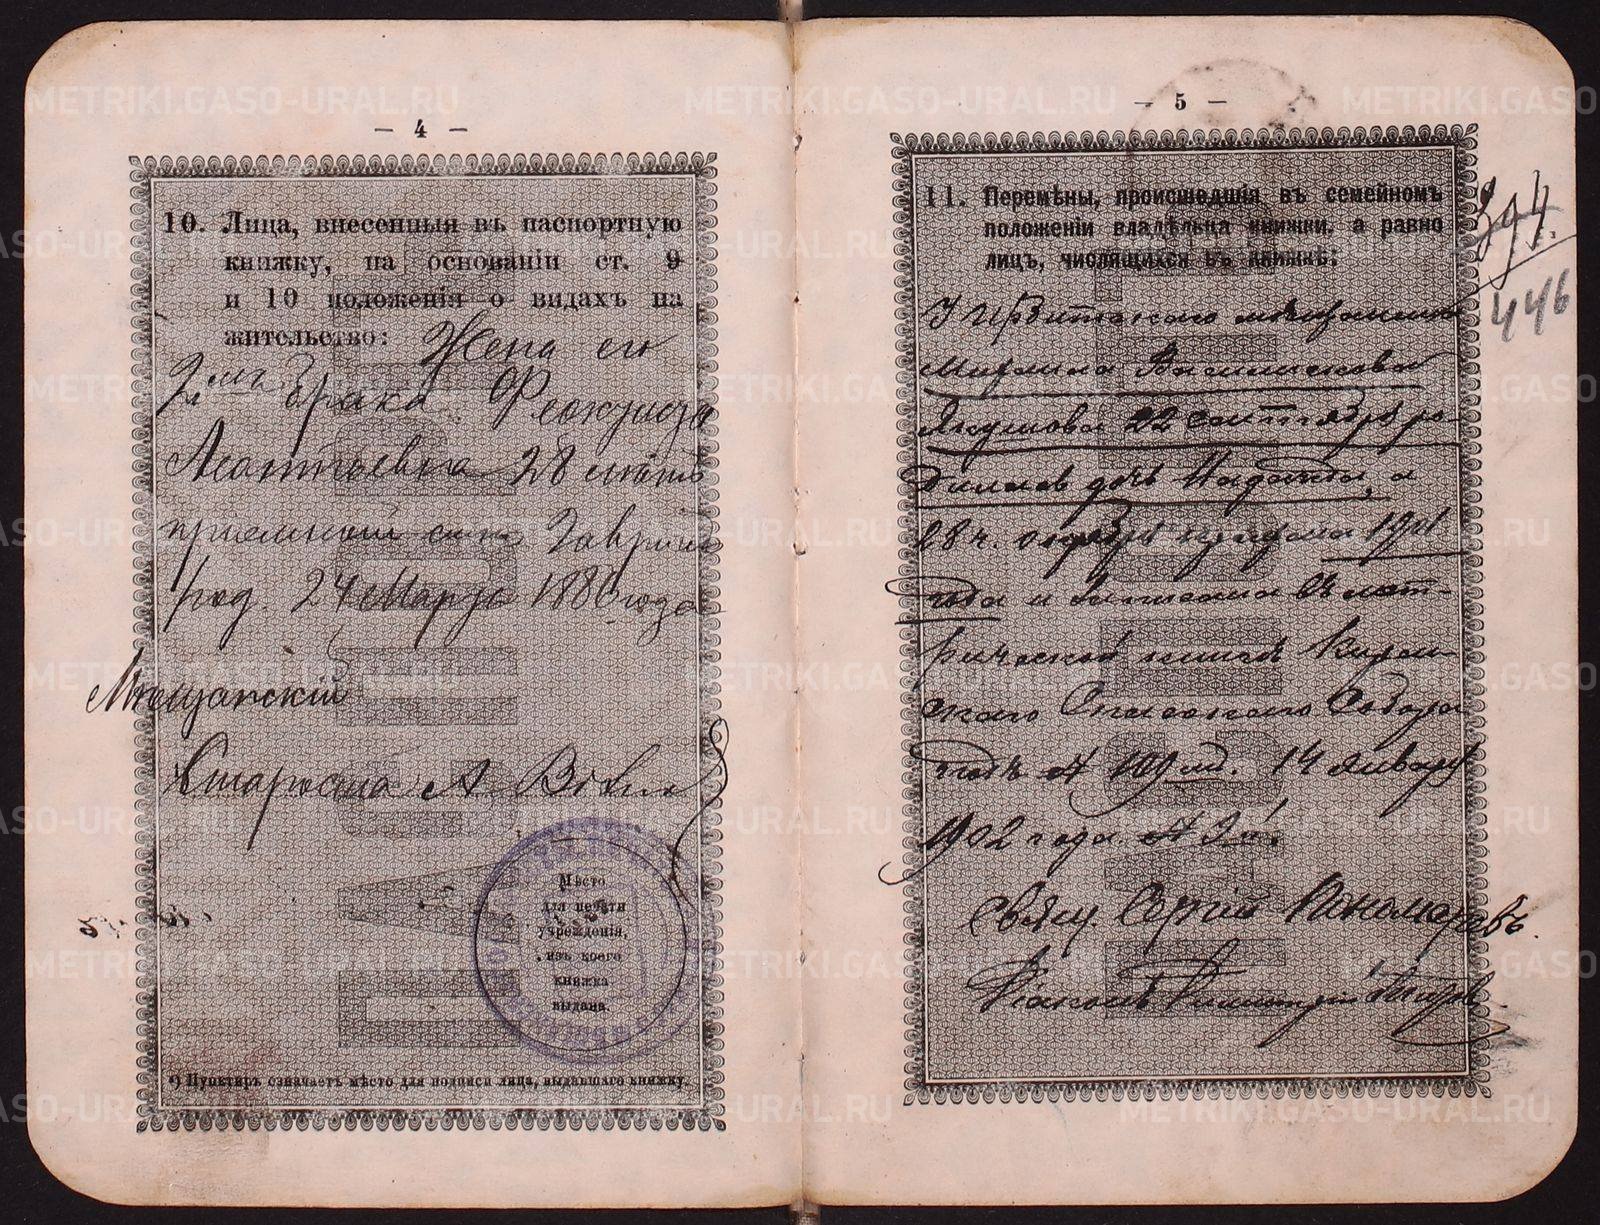 — 4 —
10. Лица, внесенныя въ паспортную
книжку, на основаніи ст. 9
и 10 положенія о видахъ на
жительство: Жена его
2го брака
28 лѣтъ
пріемный сынъ Гаврiилъ
род. 24 Марта 188 года
Мѣщанскій
Староста А
Мѣсто
для печати
учрежденія,
изъ коего
книжка
выдана.
*) Пунктиръ означаетъ мѣсто для подписи лица, выдавшаго книжку.
— 5 —
11. Перемѣны, происшедшія въ семейномъ
положеніи владѣльца книжки, а равно
лицъ, числящихся въ книжкѣ:
394.
446
У Ирбитскаго мѣщанина
Якушова 22 сентября ро-
дилась дочь Надежда, а
28 ч. октября умерла 1901
года и записана въ мет-
рической книгѣ
скаго Спасскаго Собора
подъ № 109 14 января
1902 года №
Свящ. Сергій Пономаревъ.
Діаконъ
METRIKI.GASO-URAL.RU